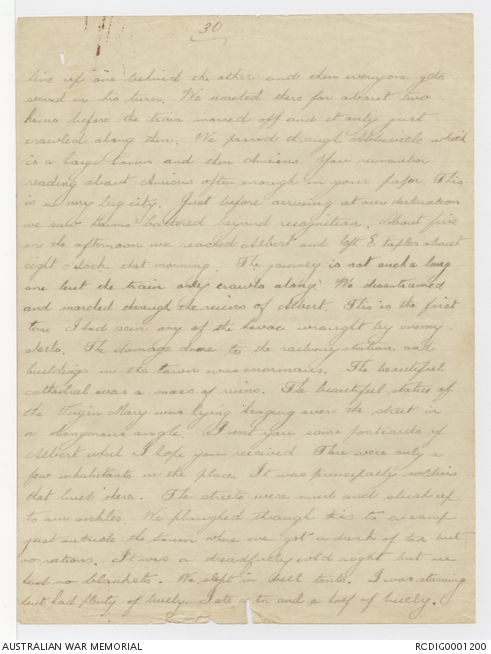 30
line up one behind the other and then everyone gets
served in his turn. We waited there for about two
hours before the train moved off and it only just
crawled along then. We passed through Abbeville which
is a large town and then Amiens. You remember
reading about Amiens often enough in your paper. This
is a very big city. Just before arriving at our destination
we saw houses battered beyond recognition. About five
in the afternoon we reached Albert and left Etaples about
eight o'clock that morning. The journey is not such a long
one but the train only crawls along. We disentrained
and marched through the ruins of Albert. This is the first
time I had seen any of the havoc wrought by enemy
shells. The damage done to the railway station and
buildings in the town was enormous. The beautiful
cathedral was a mass of ruins. The beautiful statue of
the Virgin Mary was lying hanging over the street in
a dangerous angle. I sent you some postcards of
Albert which I hope you received There were only a
few inhabitants in the place. It was principally soldiers
that lived there. The streets were mud and slush up
to our ankles. We ploughed through this to a camp
just outside the town where we got a drink of tea but
no rations. It was a dreadfully cold night but we
had no blankets. We slept in bell tents. I was starving
but had plenty of bully. I ate a tin and a half of bully.
AUSTRALIAN WAR MEMORIAL
RCDIG0001200